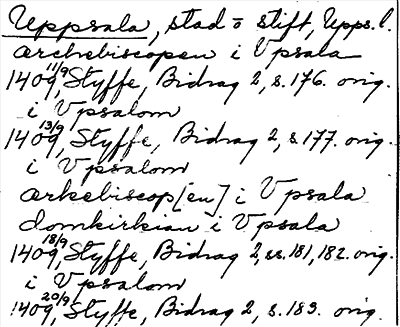 Uppsala, stad o stift, Upps. l.
archebiscopen i Vpsala
1409 11/9, Styffe, Bidrag 2, s. 176. orig.
i Vpsalom
1409 13/9, Styffe, Bidrag 2, s. 177. orig.
i Vpsalom
ærkebiscop[en] i Vpsala
domkirkian i Vpsala
1409 18/9, Styffe, Bidrag 2, ss. 181, 182. orig.
i Vpsalom
1409 20/9, Styffe, Bidrag 2, s. 183. orig.